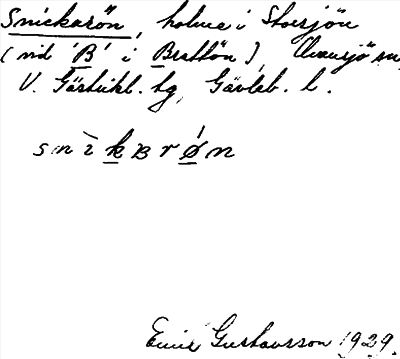 Snickarön, holme i Storsjön
(vid 'B' i Brattön), Ovansjö sn,
V. Gästrikl. tg, Gävleb. l.
snìkBrǿn
Emir Gustavsson 1929.